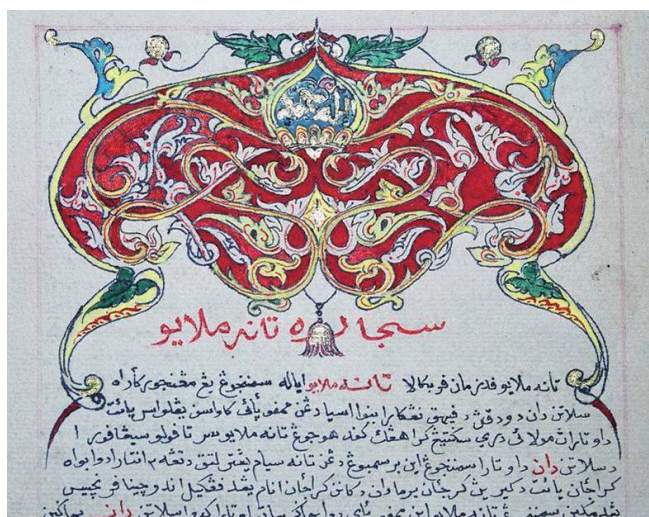 سجاره تانه ملايو
تانه ملايو ڤد زمان ڤربكالا تانه ملايو اياله سمننجوڠ يڠ مڠنجور كأراه
سلاتن دان دودقڽ دڤيهق تڠݢارا بنوا اسيا دڠن ممڤوڽاءي كاواسن يڠ لواس يائت
داوتارا مولائي دري سݢنتيڠ كرا هڠݢ كهوجوڠ تانه ملايو سرتا ڤولو سيڠاڤورا
دسلاتن دان داوتارا سمننجوڠ اين برسمبوڠ دڠن تانه سيام يڠ ترلتق دتڠه٢ انتارا دوا بواه
كراجأن يائت دكيرين كرجأن برما دان دكانن كراجأن انام يڠد ڤڠݢيل اندوچينا ڤرنچيس